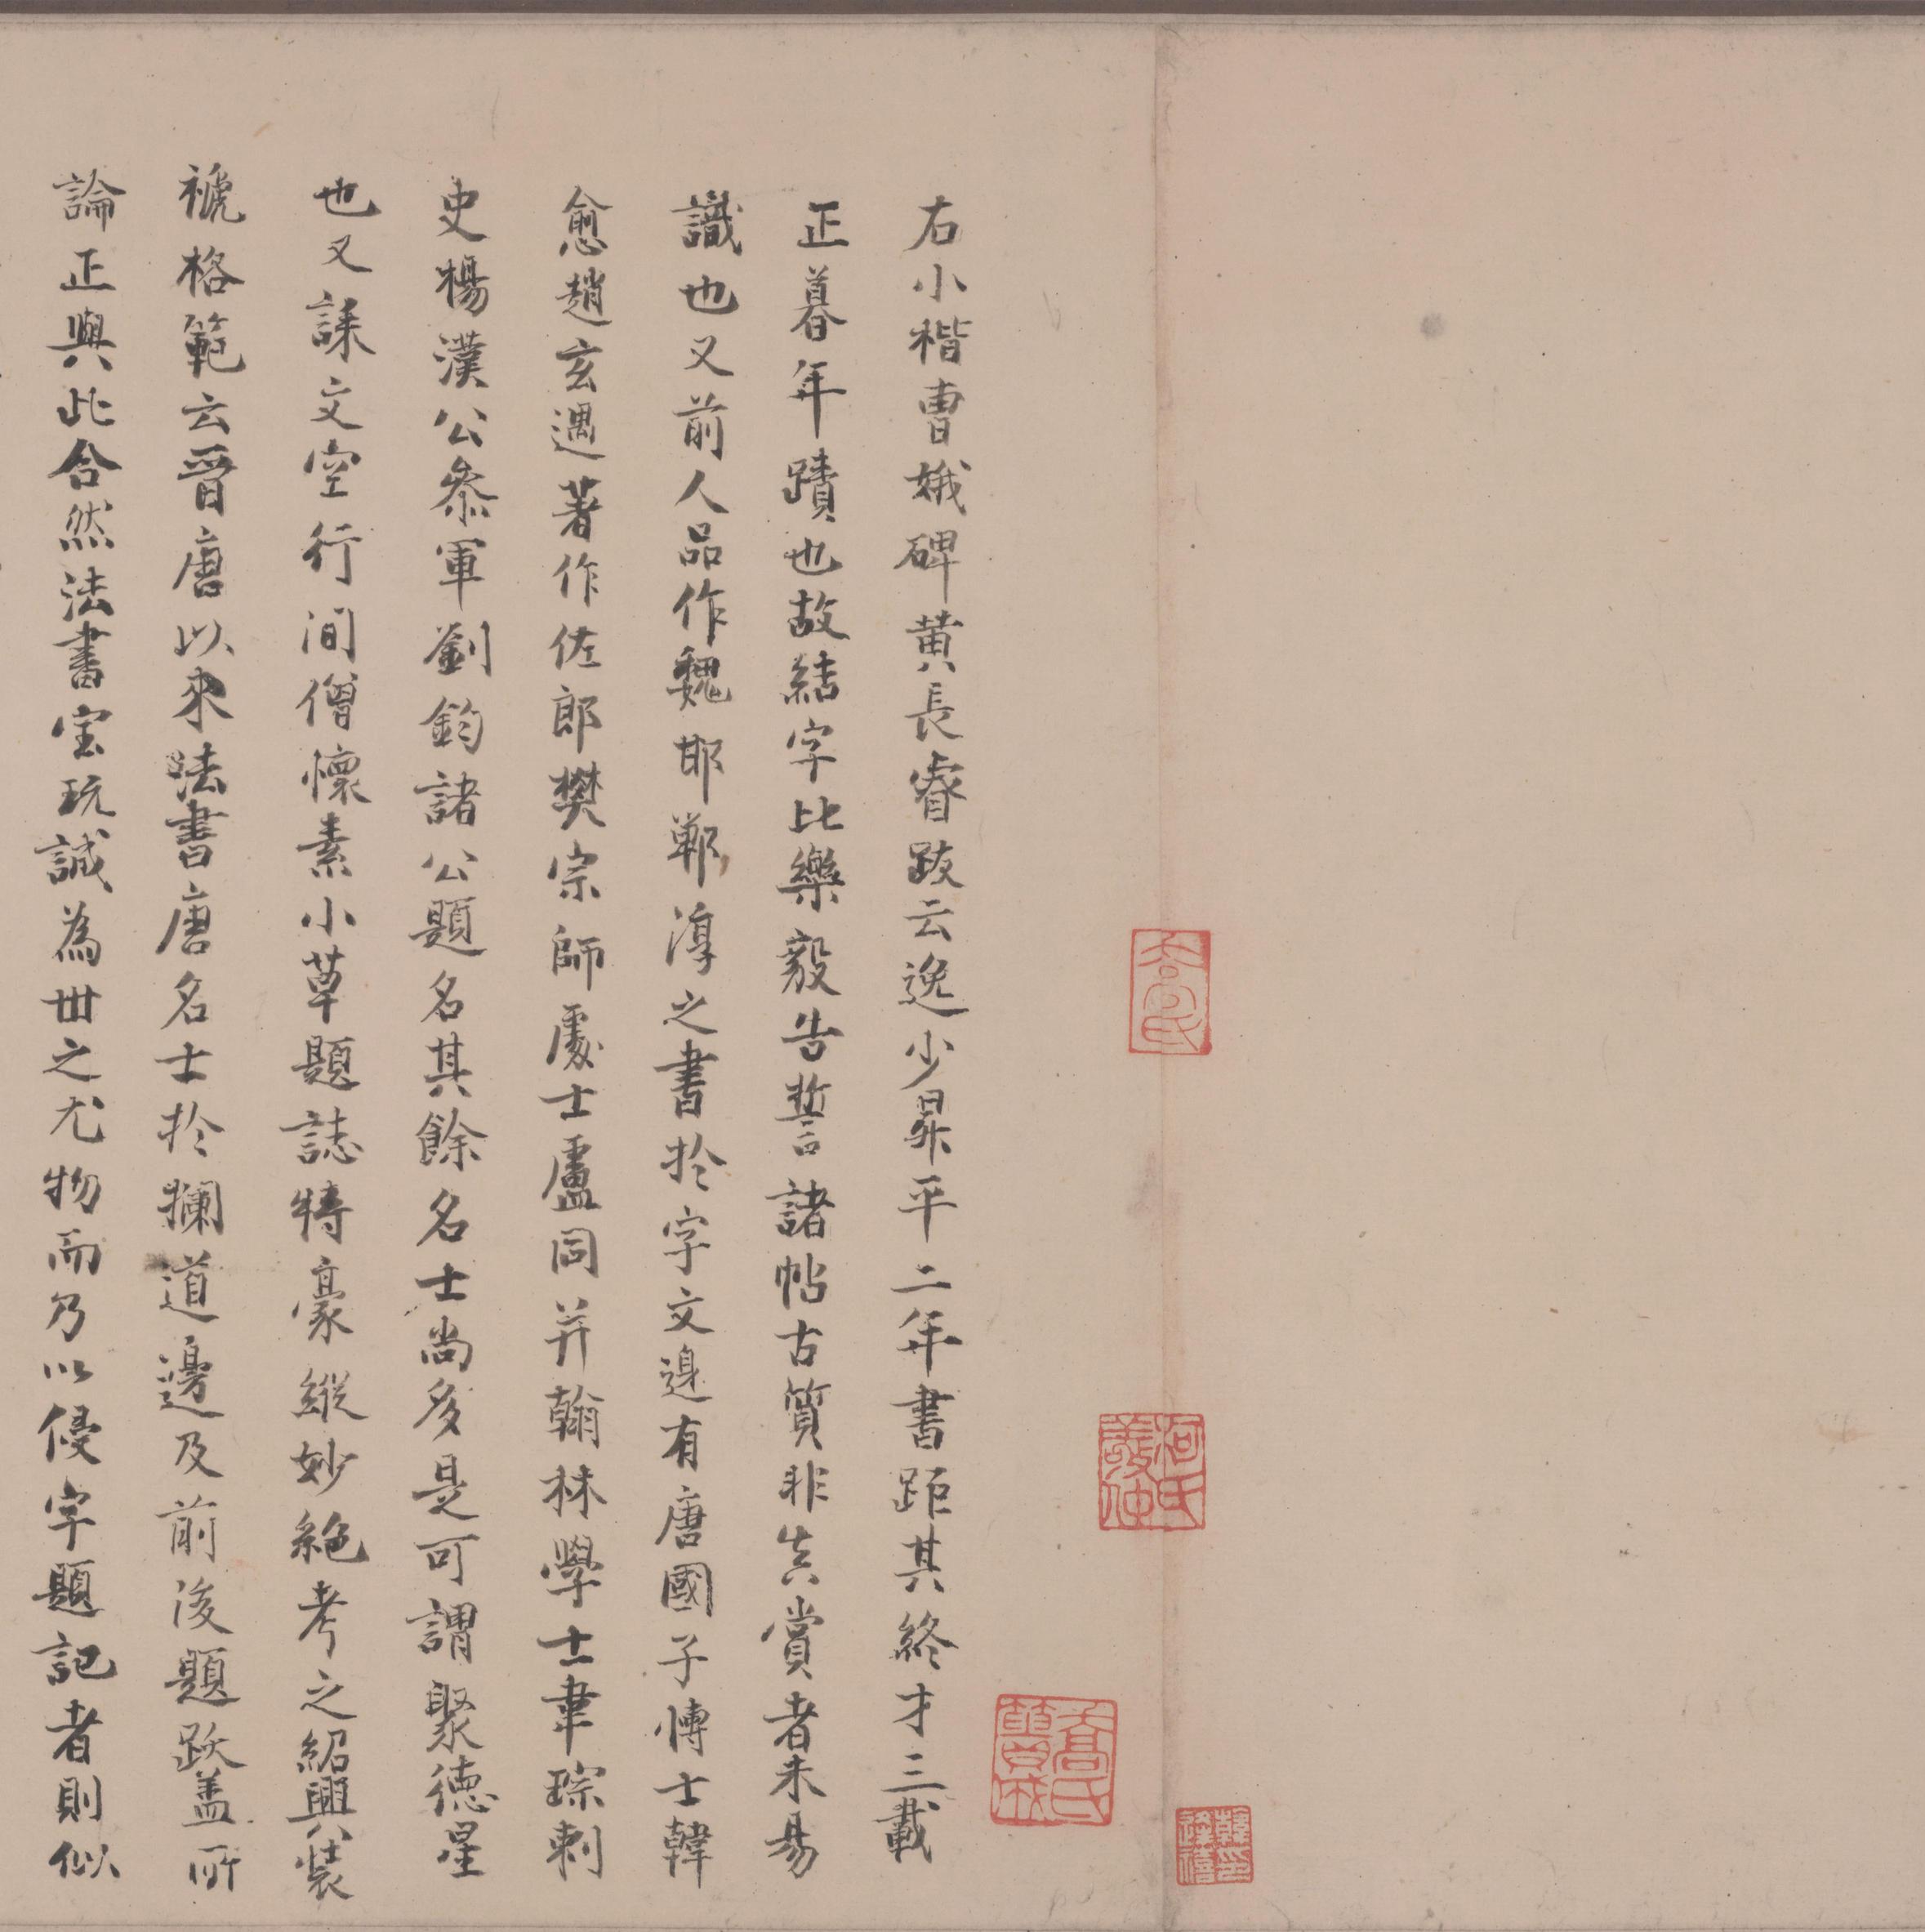 右小楷曹娥碑黃長睿跋云逸少昇平二年書距其終才三載
正暮年蹟也故結字比樂毅告誓諸帖古質非真賞者未易
識也又前人品作魏邯鄲淳之書於字文邊有唐國子博士韓
愈趙玄遇著作佐郎樊宗師處士盧同并翰林學士韋琮刺
史楊漢公參軍劉鈞諸公題名其餘名士尚多是可謂聚德星
也又誄文空行間僧懷素小草題誌特豪縱妙絕考之紹興裝
褫格範云晉唐以來法書唐名士於攔道邊及前後題跋蓋所
論正與此合然法書宝玩誠為世之尤物而乃以侵字題記者則似
喬氏
喬氏簣成